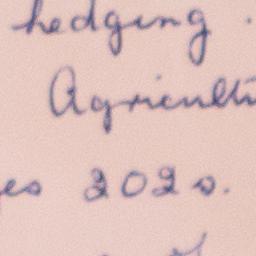 hedging.
Agricultu
es 202s.